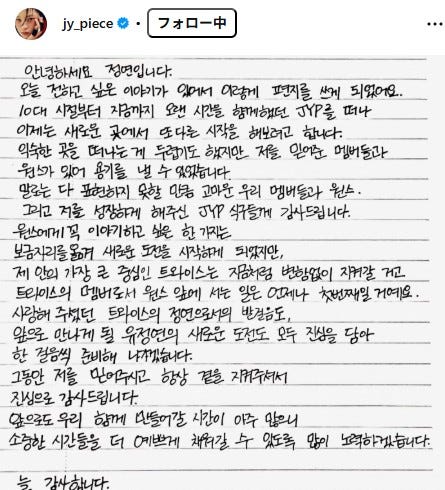 jy_piece • フォロー中
안녕하세요 정연입니다.
오늘 전하고 싶은 이야기가 있어서 이렇게 편지를 쓰게 되었어요.
10대 시절부터 지금까지 오랜 시간을 함께했던 JYP를 떠나
이제는 새로운 곳에서 또다른 시작을 해보려고 합니다.
익숙한 곳을 떠나는게 두렵기도 했지만 저를 믿어준 멤버들과
원스가 있어 용기를 낼 수 있었습니다.
말로는 다 표현하지 못할 만큼 고마운 우리 멤버들과 원스.
그리고 저를 성장하게 해주신 JYP 식구들께 감사드립니다.
원스에게 꼭 이야기하고 싶은 한 가지는
보금자리를 옮겨 새로운 도전을 시작하게 되었지만,
제 안의 가장 큰 중심인 트와이스는 지금처럼 변함없이 지켜갈 거고
트와이스의 멤버로서 원스 앞에 서는 일은 언제나 첫번째일 거예요.
사랑해 주셨던 트와이스의 정연으로서의 발걸음도,
앞으로 만나게 될 유정연의 새로운 도전도 모두 진심을 담아
한 걸음씩 준비해 나가겠습니다.
그동안 저를 믿어주시고 항상 곁을 지켜주셔서
진심으로 감사드립니다.
앞으로도 우리 함께 만들어갈 시간이 아주 많으니
소중한 시간들을 더 예쁘게 채워갈 수 있도록 많이 노력하겠습니다.
늘 감사합니다.